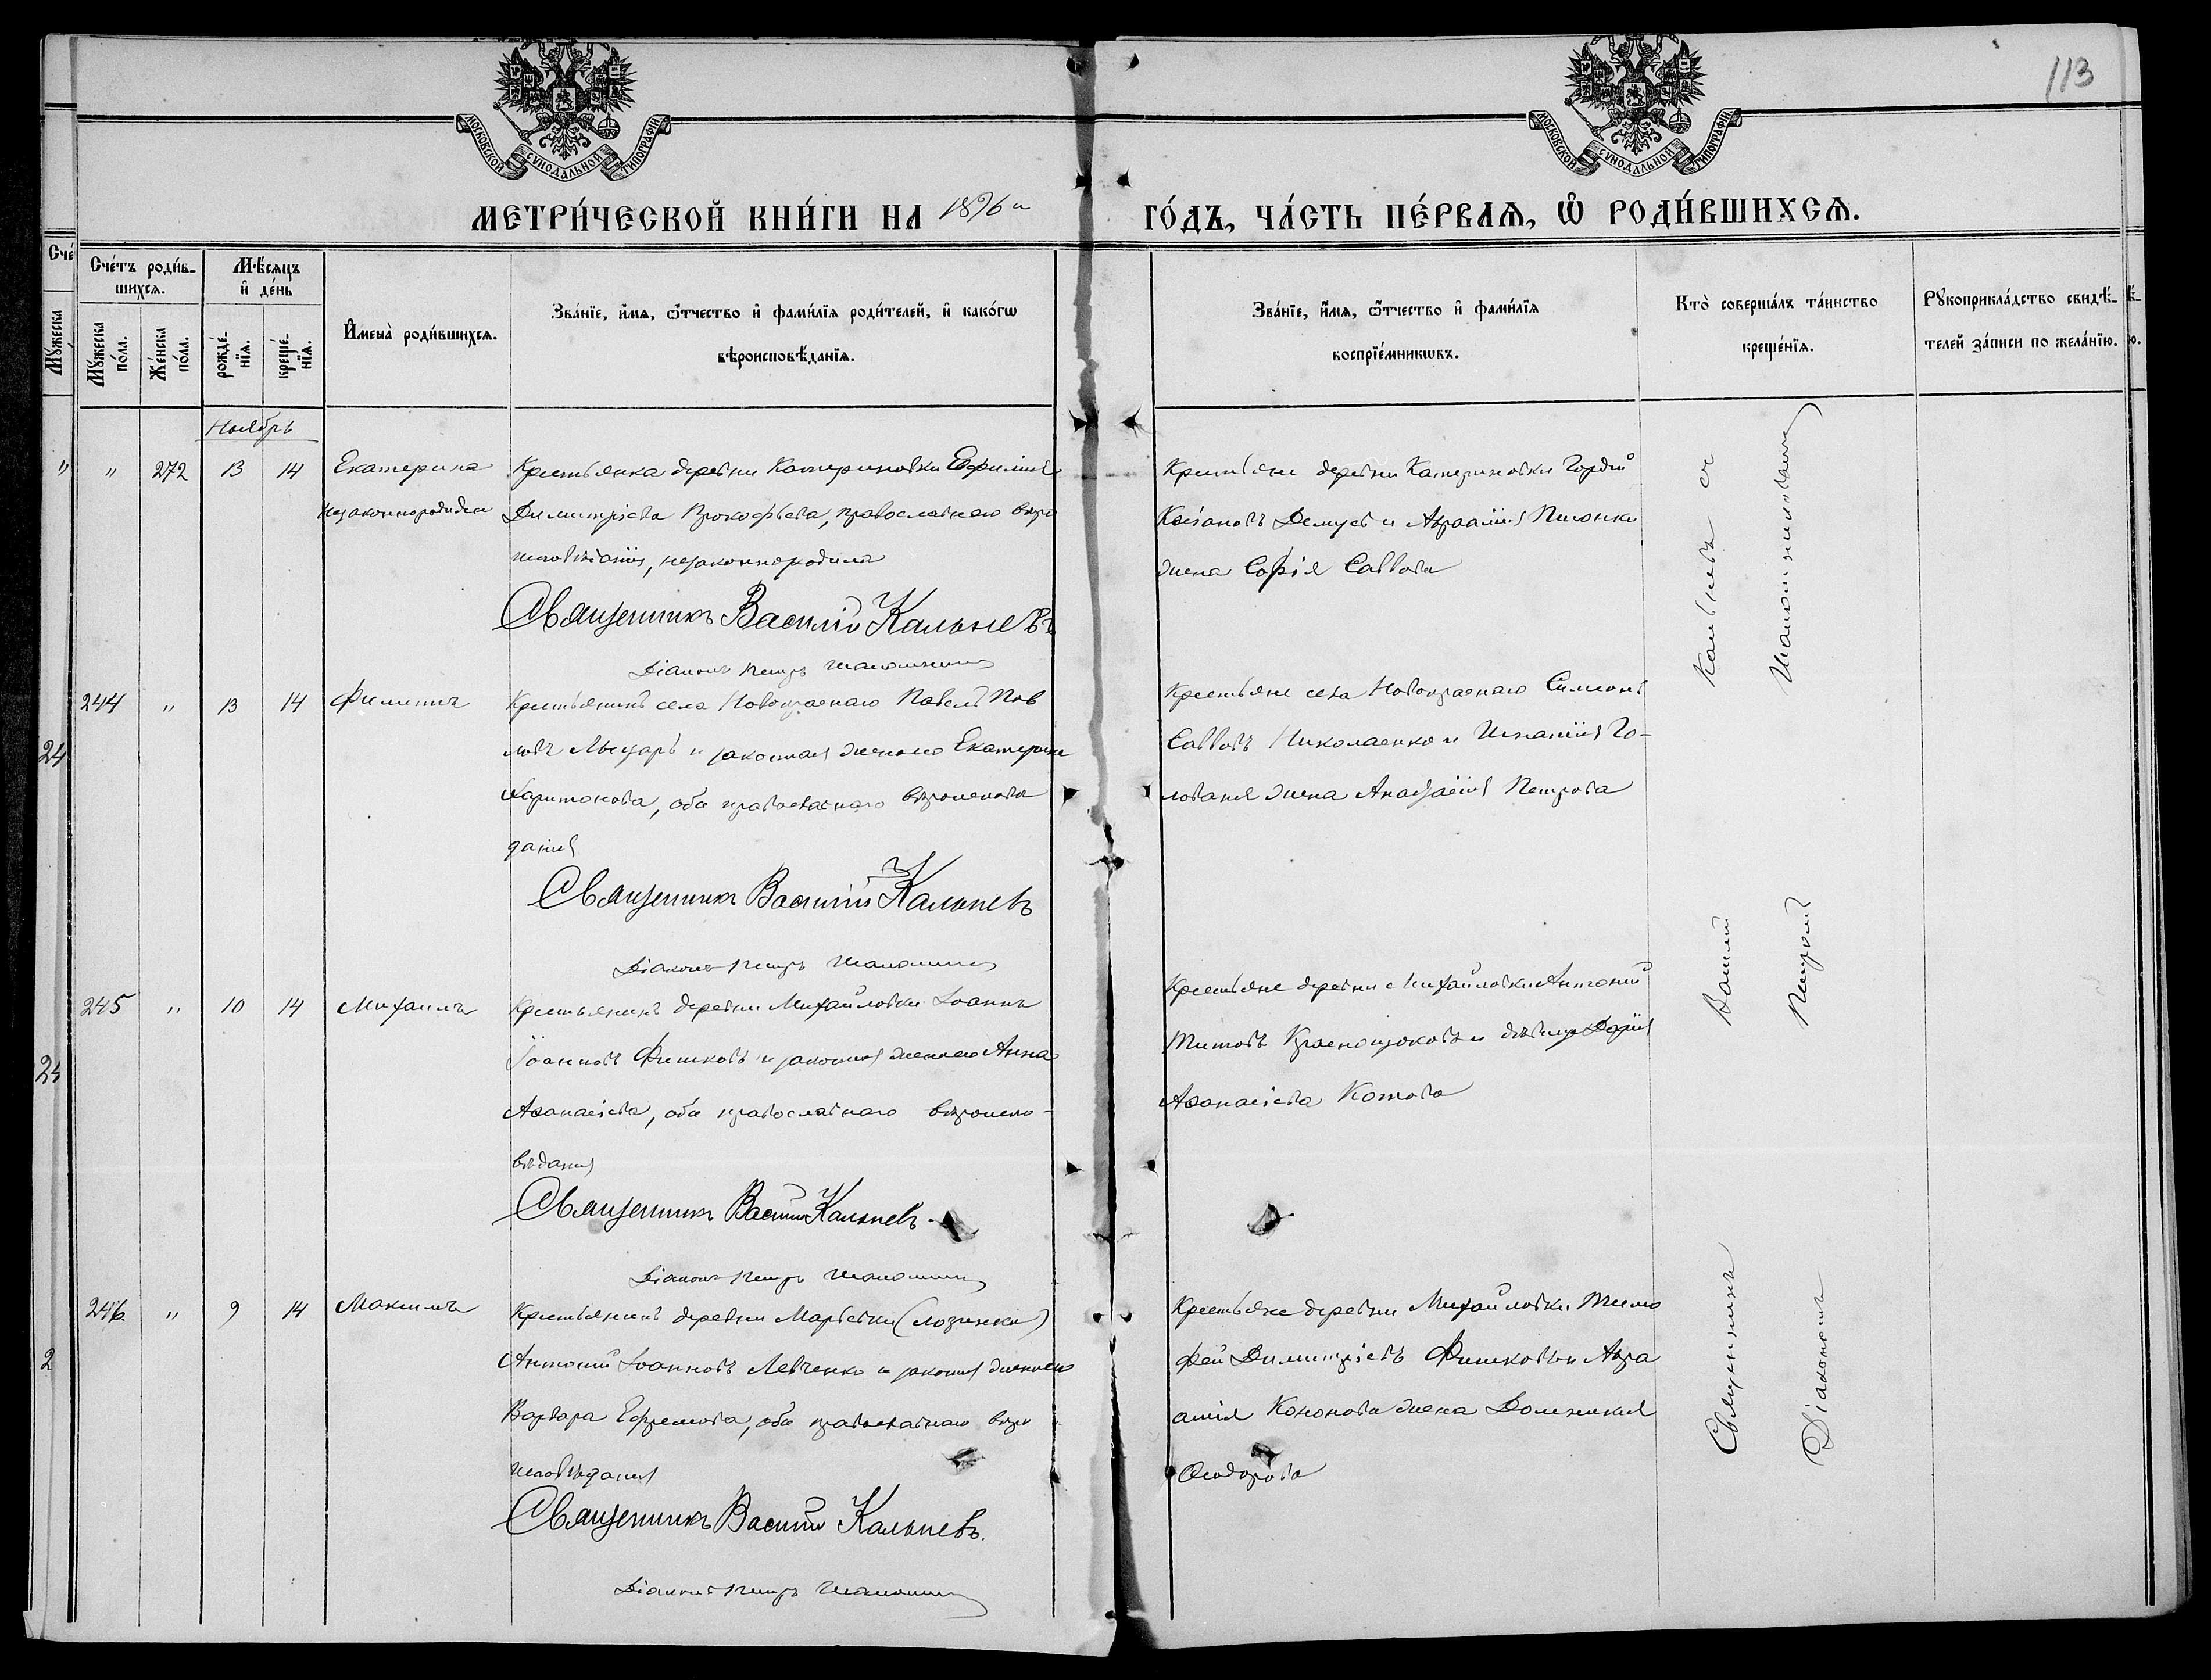 113
МОСКОВСКОЙ СѴНОДАЛЬНОЙ ТИПОГРАФІИ
МОСКОВСКОЙ СѴНОДАЛЬНОЙ ТИПОГРАФІИ
МЕТРИ́ЧЕСКОЙ КНИ́ГИ НА 1896 и
ГО́ДЪ, ЧА́СТЬ ПЕ́РВАѦ, Ѡ҆ РОДИ́ВШИХСѦ.
Сче́
Мꙋ́жеска
Сче́тъ роди́в-
шихсѧ.
Мꙋ́жеска
по́ла.
Же́нска
по́ла.
Мѣ́сѧцъ
и҆ де́нь
рожде́-
нїѧ.
креще́-
нїѧ.
И҆мена̀ роди́вшихсѧ.
Зва́нїе, и҆́мѧ, ѻ҆́тчество и҆ фами́лїѧ роди́телей, и҆ како́гѡ
вѣроисповѣ́данїѧ.
Зва́нїе, и҆́мѧ, ѻ҆́тчество и҆ фами́лїѧ
воспрїе́мникѡвъ.
Кто̀ соверша́лъ та́инство
креще́нїѧ.
Рꙋкоприкла́дство свидѣ́-
телей за́писи по жела́нїю.
Ноябрь
" 272 13 14 Екатерина
незаконнорожден
Крестьянка деревни Катериновки Евфимія
Димитріева Прокофьева, православнаго вѣро
исповѣданія, незаконнородила
Священникъ Василій Кальневъ
Діаконъ Петръ
Крестьяне деревни Катериновки Гордій
Демус и Авраамія Пилонки
жена Софія Саввова
244 " 13 14 Филиппъ
Крестьянинъ села Новокраснаго Павелъ Пав
ловъ и законная жена его Екатерина
Харитонова, оба православнаго вѣроисповѣ
данія
Священникъ Василій Кальневъ
Діаконъ Петръ
Крестьяне села Новокраснаго Симеонъ
Савковъ Николаенко и Игнатія Го-
лованя жена Анастасія Петрова
245 " 10 14 Михаилъ
Крестьянинъ деревни Михайловки Іоаннъ
Іоанновъ Фишковъ и законная жена его Анна
Аѳанасіева, оба православнаго вѣроиспо-
вѣданія
Священникъ Василій Кальневъ
Діаконъ Петръ
Крестьяне деревни Михайловки Антоній
Титовъ Краснощоковъ и дѣвица Дарія
Аѳанасіева Котова
246 " 9 14 Максимъ
Крестьянинъ деревни Марьевки (Лозинки)
Антоній Іоанновъ Левченко и законная жена его
Варвара Ефремова, оба православнаго вѣро
исповѣданія
Священникъ Василій Кальневъ.
Діаконъ Петръ
Крестьяне деревни Михайловки Тимо
фей Димитріевъ Фишковъ и Авра
амія Кононова жена Домникія
Ѳеодорова
Священникъ Василій Кальневъ съ
Діакономъ Петромъ